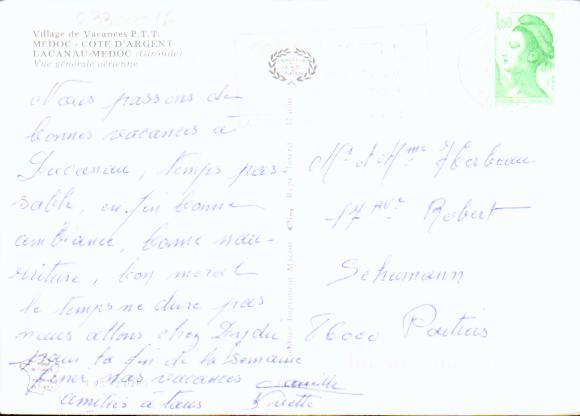 Village de Vacances P.T.T.
MEDOC - COTE D'ARGENT
LACANAU-MEDOC (Gironde)
Vue générale aérienne
1,60
Nous passons de
bonnes vacances à
Lacanau, temps pas-
sable, enfin bonne
ambiance, bonne nou-
rriture, bon moral
le temps ne dure pas
nous allons chez
pour la fin de la semaine
finir nos vacances
amitiés à tous
Mr et Mme Herbeau
17 Ave Robert
Schumann
86000 Poitiers